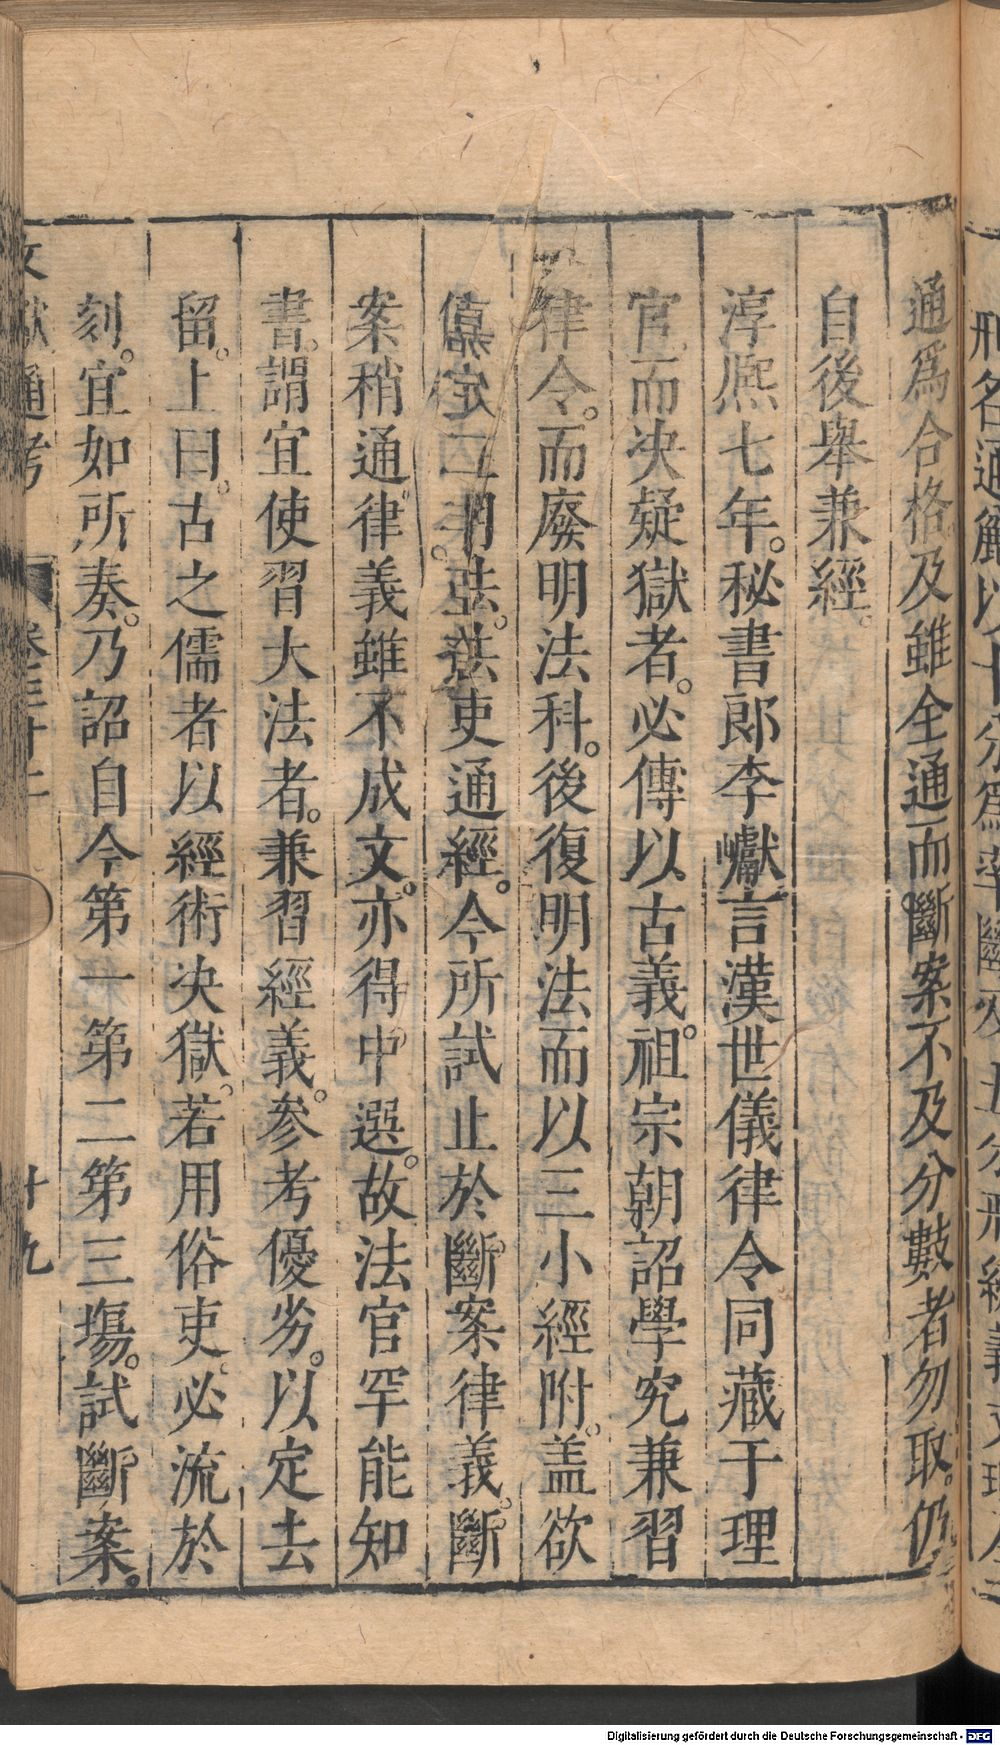 刑名通
通爲合格及雖全通而斷案不及分數者勿取。仍
自後舉兼經。
淳熈七年。秘書郎李巘言漢世儀律令同藏于理
官。而决疑獄者。必傳以古義。祖宗朝詔學究兼習
律令。而廢明法科。後復明法而以三小經附。盖欲
法吏通經。今所試止於斷案律義。斷
案稍通。律義雖不成文。亦得中選。故法官罕能知
書。謂宜使習大法者。兼習經義。參考優劣。以定去
留。上曰。古之儒者以經術决獄。若用俗吏。必流於
刻。宜如所奏。乃詔自今第一第二第三塲。試斷案。
文獻通考 卷三十二 十九
Digitalisierung gefördert durch die Deutsche Forschungsgemeinschaft - DFG